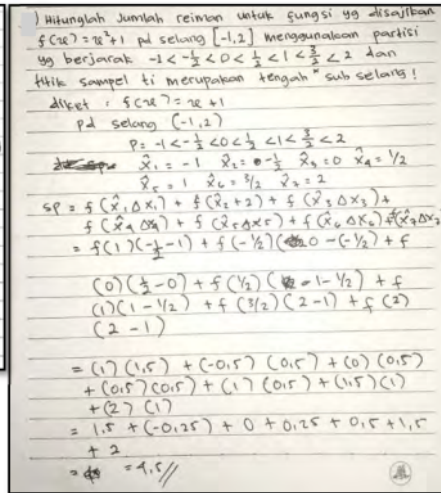 ) Hitunglah Jumlah reiman untuk fungsi yg disajikan
f(x) = x²+1 pd selang [-1,2] menggunakan partisi
yg berjarak -1<-½<0<½<1<3/2<2 dan
titik sampel ti merupakan tengah" sub selang!
diket : f(x) = x+1
pd selang (-1,2)
P = -1<-½<0<½<1<3/2<2
x̂₁ = -1 x̂₂ = -½ x̂₃ = 0 x̂₄ = 1/2
x̂₅ = 1 x̂₆ = 3/2 x̂₇ = 2
SP = f(x̂₁Δx₁) + f(x̂₂+2) + f(x̂₃Δx₃)+
f(x̂₄Δx₄) + f(x̂₅Δx5) + f(x̂₆Δx₆)+f(x̂₇Δx₇
= f(1)(-½-1) + f(-½)(0-(-½) + f
(0)(½-0) + f(½)(-1-½) + f
(1)(1-½) + f(3/2)(2-1) + f(2)
(2-1)
= (1)(1,5) + (-0,5)(0,5) + (0)(0,5)
+ (0,5)(0,5) + (1)(0,5) + (1,5)(1)
+(2)(1)
= 1,5 + (-0,25) + 0 + 0,25 + 0,5 + 1,5
+ 2
= = 4,5//